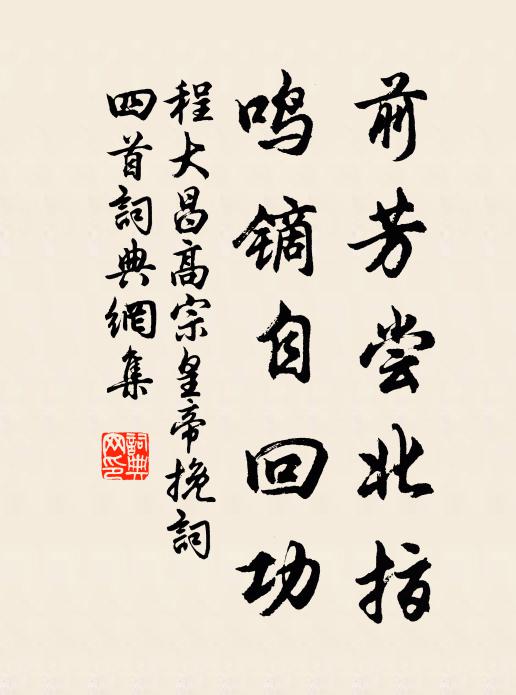 前芳尝北指
鸣镝自回功
程大昌高宗皇帝挽詞
四首詞典網集
詞典网印